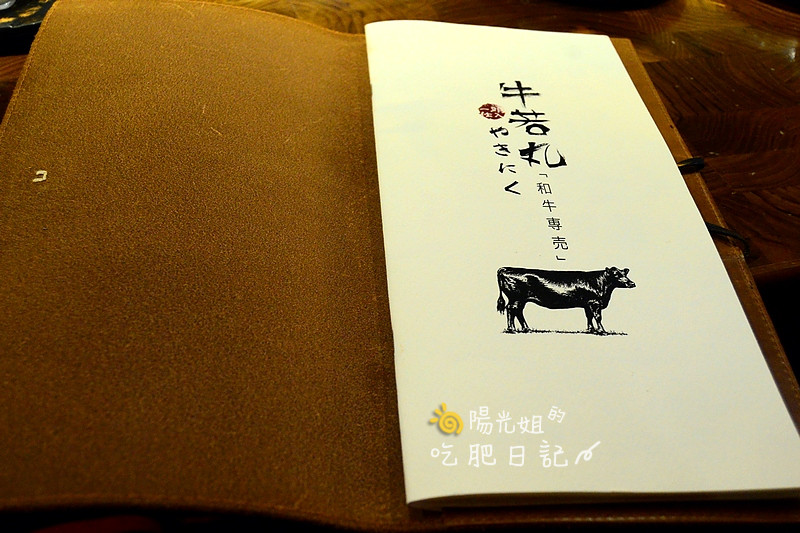 牛若丸
やきにく
「和牛專売」
陽光姐的
吃肥日記